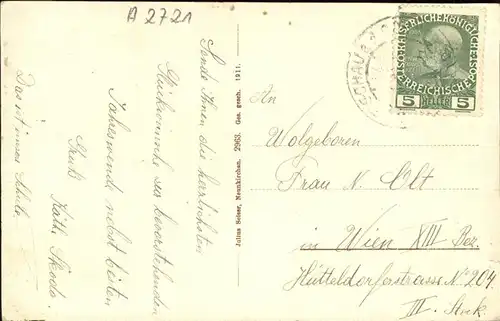 A 2721
Sende Ihnen die herzlichsten
Glückwünsche zur bevorstehenden
Jahreswende nebst besten
Gruß Käthi
Das ist unsere Schule.
Julius Seiser, Neunkirchen. 2963. Ges. gesch. 1911.
KAISERLICHE KÖNIGLICHE
ÖSTERREICHISCHE POST
5 HELLER 5
An
Wolgeboren
Frau N. Olt
in Wien XIII Bez.
Hütteldorferstrasse No 204
III. Stock